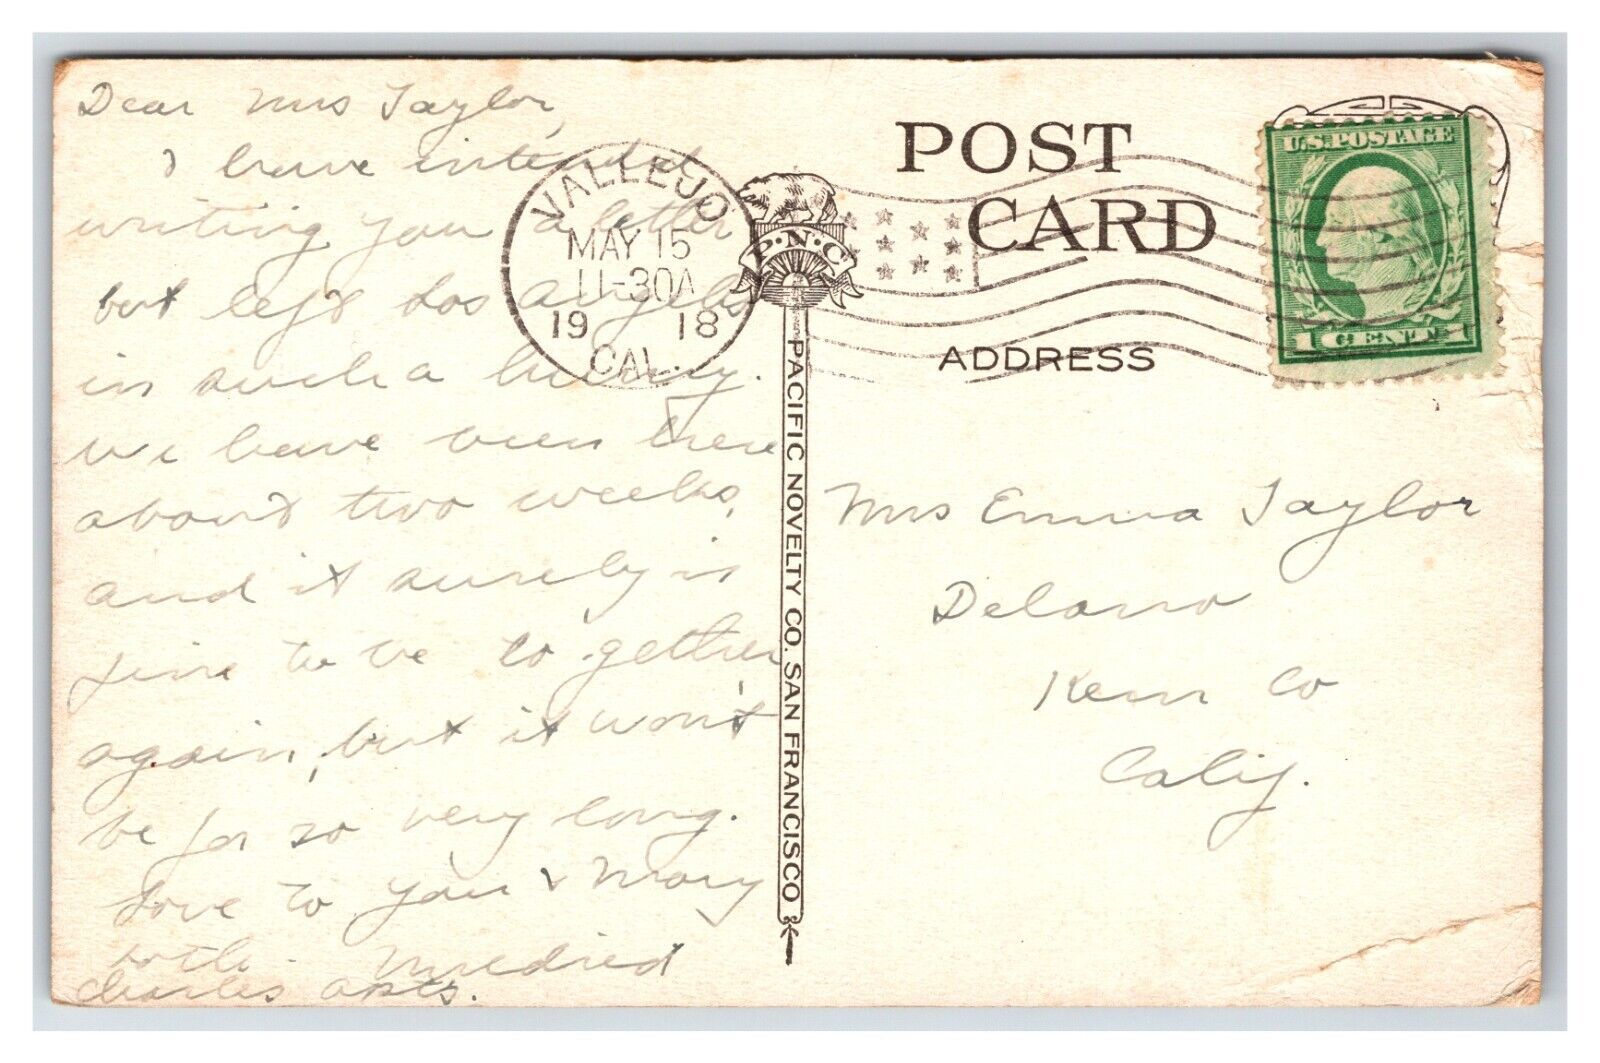 Dear Mrs Taylor,
I have intended
writing you a letter
but left Los Angeles
in such a hurry.
We have been here
about two weeks,
and it surely is
fine to be to gether
again, but it won't
be for so very long.
Love to you & Mary
both. Mildred
Charles Apts.
VALLEJO
MAY 15
11-30A
19 18
CAL.
P.N.C
PACIFIC NOVELTY CO. SAN FRANCISCO
POST
CARD
ADDRESS
U.S. POSTAGE
1 CENT 1
Mrs Emma Taylor
Delano
Kern Co
Calif.